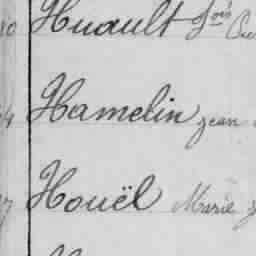 Huault
Hamelin jean
Houël Marie